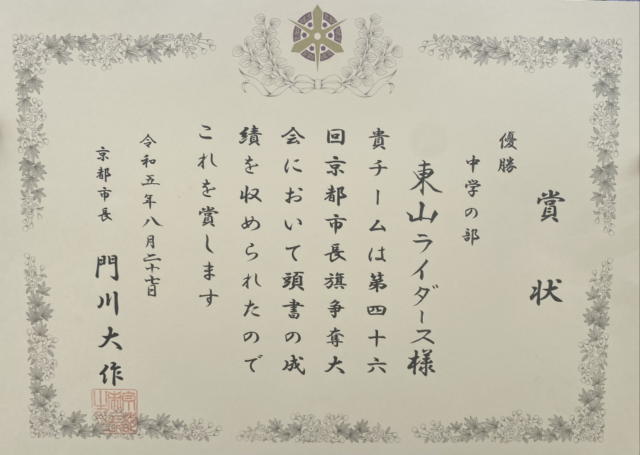 賞状
優勝
中学の部
東山ライダース様
貴チームは第四十六
回京都市長旗争奪大
会において頭書の成
績を収められたので
これを賞します
令和五年八月二十七日
京都市長
門川大作